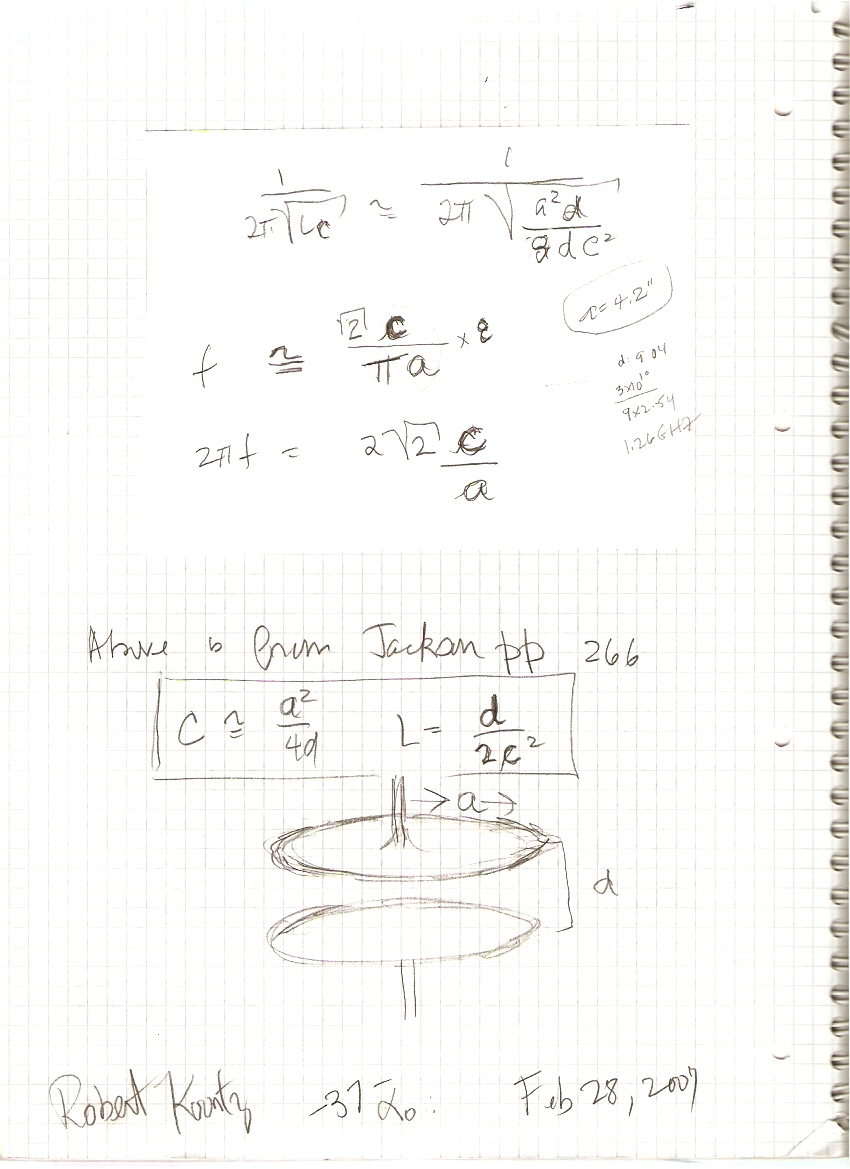 1 / 2π√LC ≃ 1 / 2π√(a²d / 8dc²)
r = 4.2"
f ≅ √2 c / πa ×
d: 9.04
3×10¹⁰ / 9×2.54
1.26GHz
2πf = 2√2 c / a
Above is from Jackson pp 266
C ≅ a² / 4d L = d / 2c²
→ a →
d
Robert Kountz Feb 28, 2007